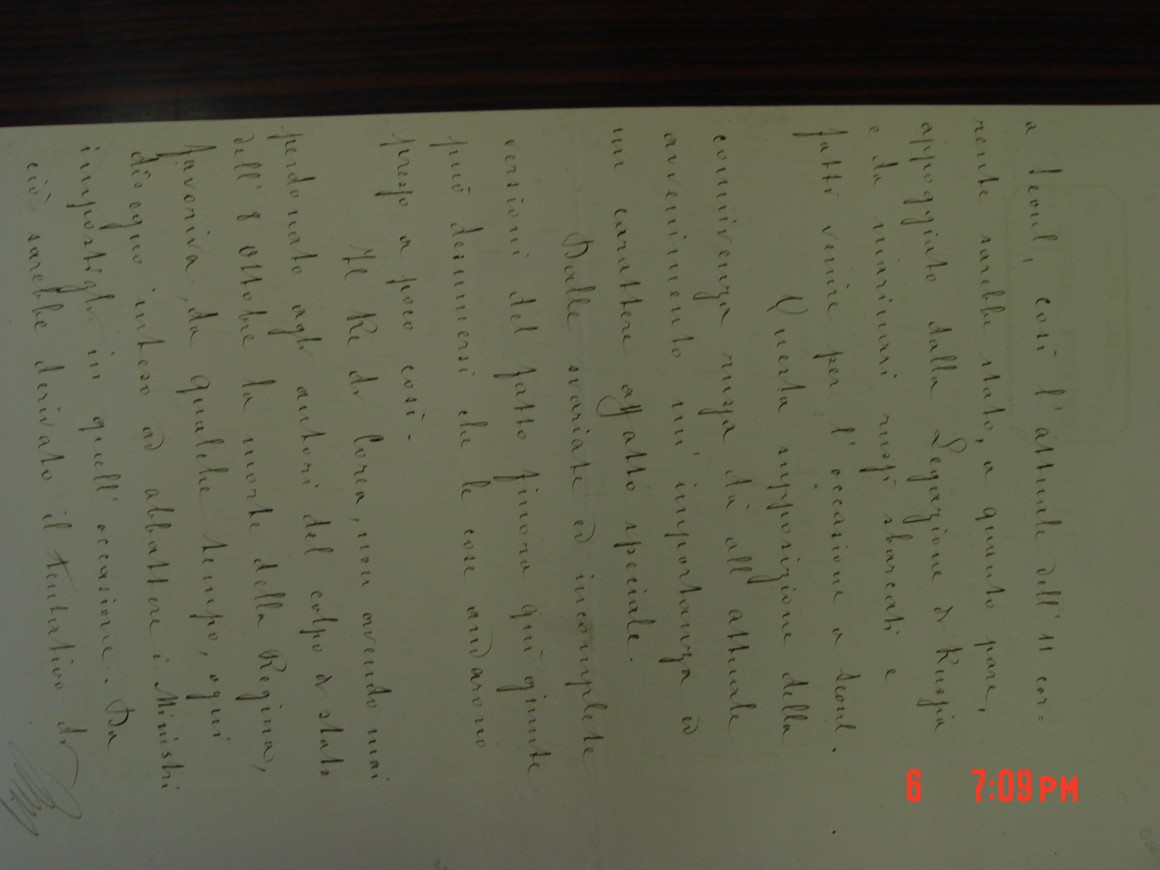 a Seoul, così l'attuale dell'11 cor=
rente sarebbe stato, a quanto pare,
appoggiato dalla Legazione di Russia
e da marinari russi sbarcati e
fatti venire per l'occasione a Seoul.
Questa supposizione della
connivenza russa dà all'attuale
avvenimento un'importanza ed
un carattere affatto speciale.
Dalle svariate ed incomplete
versioni del fatto finora quì giunte
può desumersi che le cose andarono
presso a poco così.
Il Re di Corea, non avendo mai
perdonato agli autori del colpo di stato
dell'8 Ottobre la morte della Regina,
favoriva, da qualche tempo, ogni
disegno inteso ad abbattere i Ministri
impostigli in quell'occasione. Da
ciò sarebbe derivato il tentativo di
6 7:09 PM